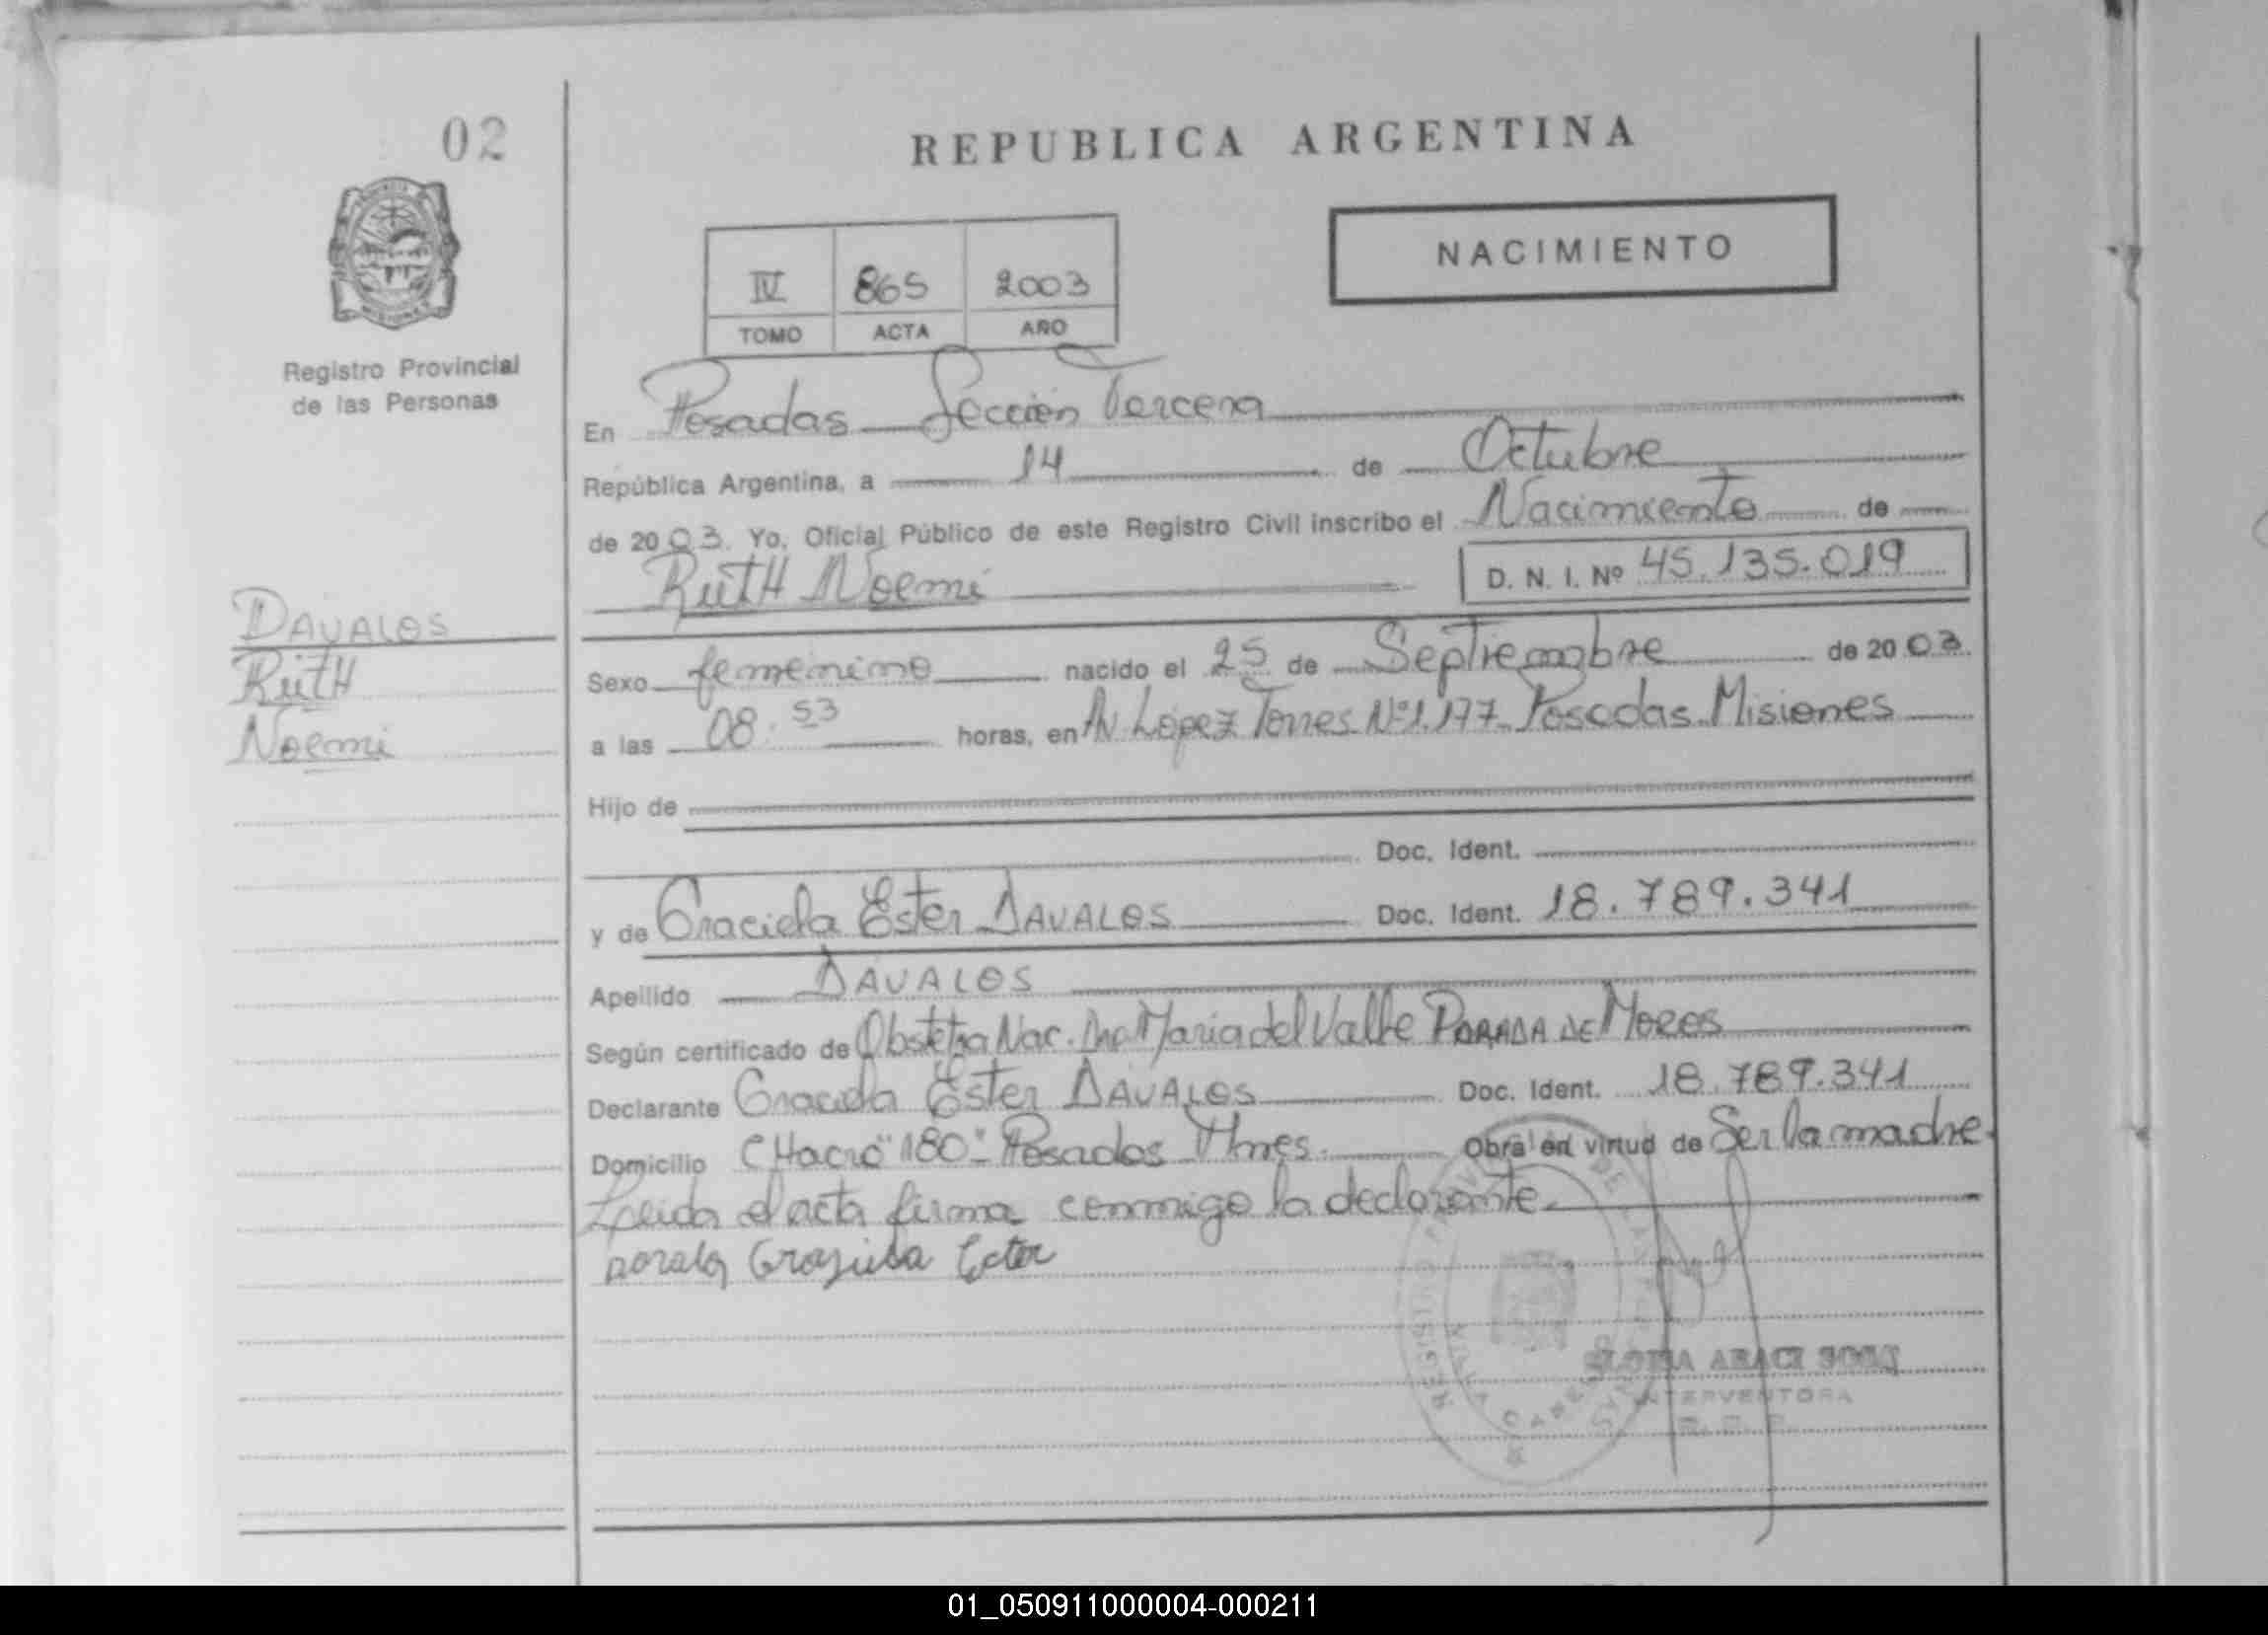 02
REPUBLICA ARGENTINA
NACIMIENTO
IV 865 2003
TOMO ACTA AÑO
Registro Provincial
de las Personas
En Posadas Sección Tercera
República Argentina, a 14 de Octubre
de 2003. Yo, Oficial Público de este Registro Civil inscribo el Nacimiento de
Ruth Noemi D. N. I. Nº 45.135.019
DAVALOS
Ruth
Noemi
Sexo femenino nacido el 25 de Septiembre de 2003.
a las 08:53 horas, en Av. López Torres Nº 1.177 Posadas Misiones
Hijo de
Doc. Ident.
y de Graciela Ester DAVALOS Doc. Ident. 18.789.341
Apellido DAVALOS
Según certificado de Obstetra Nac. Dña María del Valle PARADA DE MOROS
Declarante Graciela Ester DAVALOS Doc. Ident. 18.789.341
Domicilio CHacra "180" Posadas Mnes. Obra en virtud de Ser la madre.
Leida el acta firma conmigo la declarante.
Graziela Ester
INTERVENTORA
01_050911000004-000211